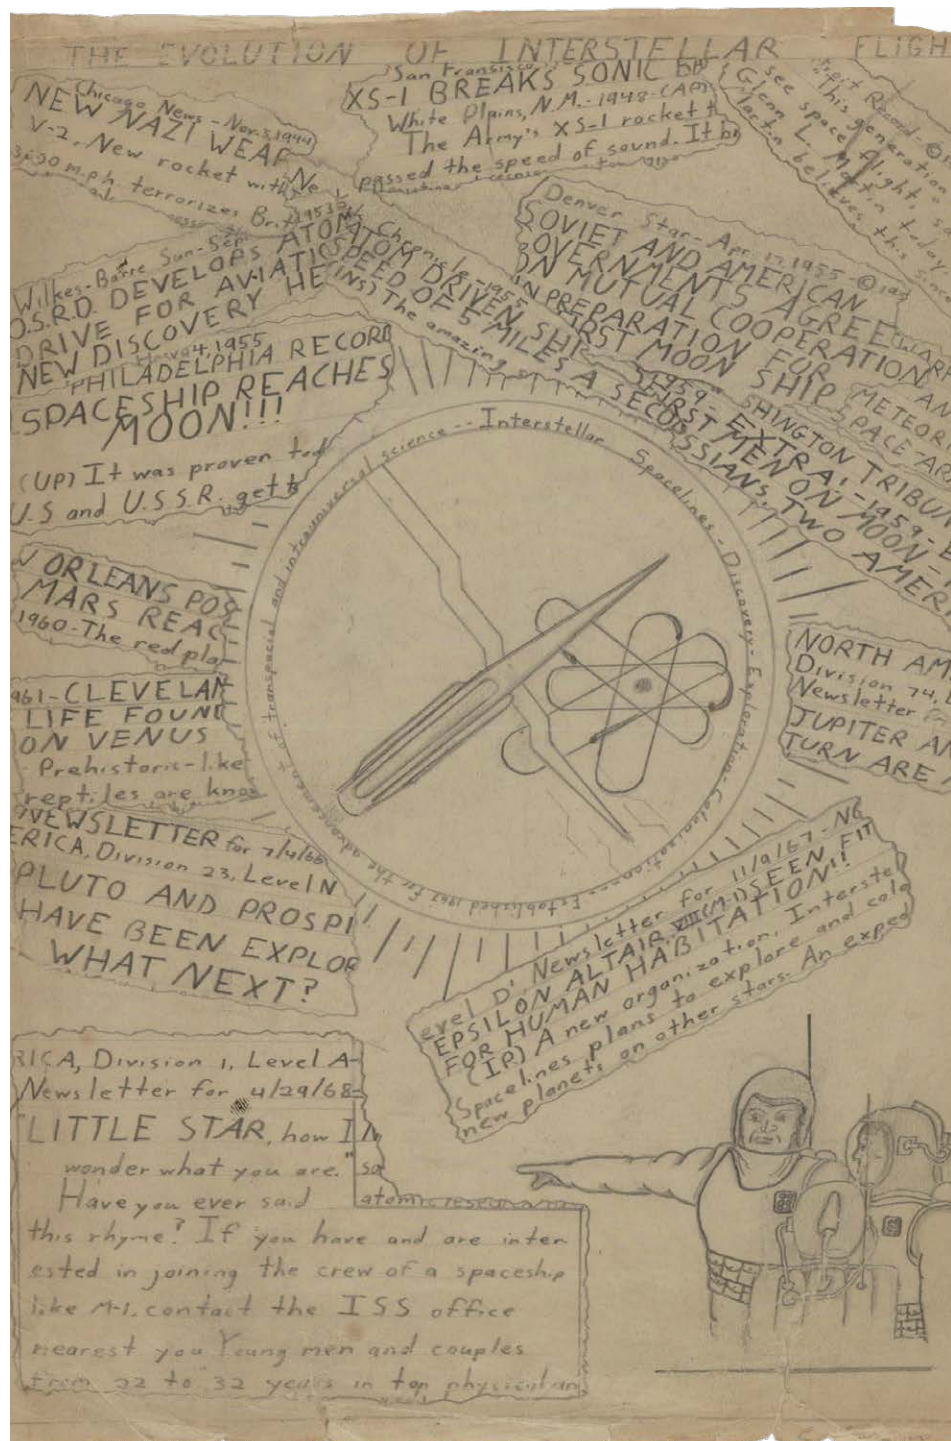 THE EVOLUTION OF INTERSTELLAR FLIGH
Chicago News - Nov. 3, 1944
NEW NAZI WEAP
V-2, New rocket with
m.p.h. terrorizes Br
San Fransisco
XS-1 BREAKS SONIC
White Plains, N.M. - 1948 - (AP)
The Army's XS-1 rocket
passed the speed of sound. It
Record - ©
This generation
see space flight,
Glenn L. Martin today
Martin believes this
Wilkes-Barre Sun - Sep
O.S.R.D. DEVELOPS ATOM
DRIVE FOR AVIATI
NEW DISCOVERY HE
Chronicle - 1955
ATOM DRIVEN SHI
SPEED OF 5 MILES A SECO
(INS) The amazing
Denver Star - Apr. 17, 1955 - ©
SOVIET AND AMERICAN
GOVERNMENTS AGREE
ON MUTUAL COOPERATION
IN PREPARATION FOR
FIRST MOON SHIP
METEOR
SPACE-AR
4, 1955
PHILADELPHIA RECORD
SPACESHIP REACHES
MOON!!!
(UP) It was proven
U.S and U.S.S.R. get
SHINGTON TRIBUN
1959 - EXTRA, - 1959 - E
FIRST MEN ON MOON -
SSIANS, TWO AMERI
W ORLEANS POS
MARS REAC
1960 - The red pla
961 - CLEVELAN
LIFE FOUND
ON VENUS
Prehistoric-like
reptiles are kno
Interstellar Spacelines - Discovery - Exploration - Colonization -- Established 1967 for the advancement of transpacial and intrauniversal science --
NORTH AM
Division 74,
Newsletter fo
JUPITER AN
TURN ARE
NEWSLETTER for 7/4/66
ERICA, Division 23, Level N
PLUTO AND PROSPI
HAVE BEEN EXPLOR
WHAT NEXT?
evel D', Newsletter for 11/9/67 - NO
EPSILON ALTAIR VIII (M-1) SEEN FIT
FOR HUMAN HABITATION!!
(IP) A new organization, Interstel
Spacelines plans to explore and colo
new planets on other stars. An exped
RICA, Division 1, Level A-
Newsletter for 4/29/68-
"LITTLE STAR, how I
wonder what you are."
Have you ever said
atomic research
this rhyme? If you have and are inter
ested in joining the crew of a spaceship
like M-1, contact the ISS office
nearest you Young men and couples
from 22 to 32 years in top physical an